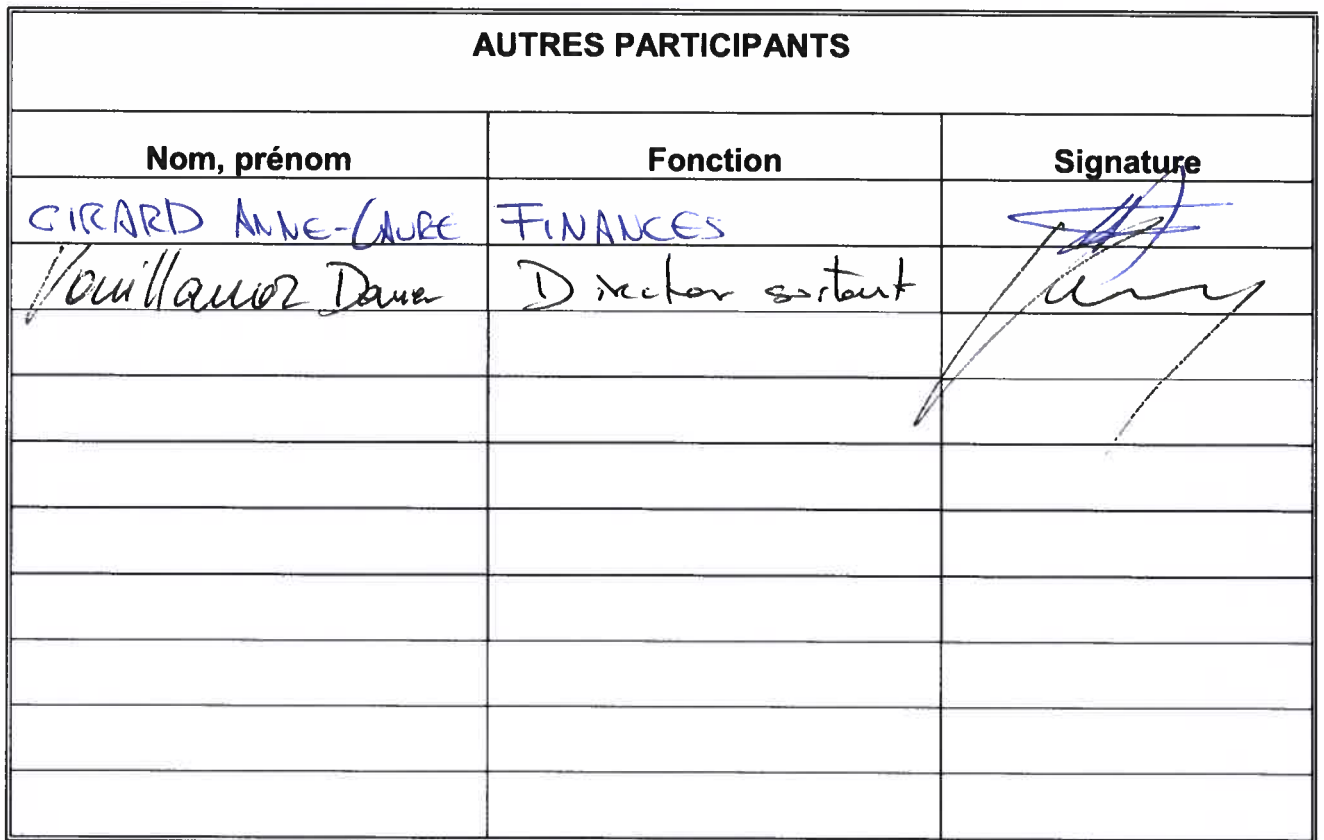 AUTRES PARTICIPANTS
Nom, prénom Fonction Signature
GIRARD ANNE-LAURE FINANCES
Director sortant